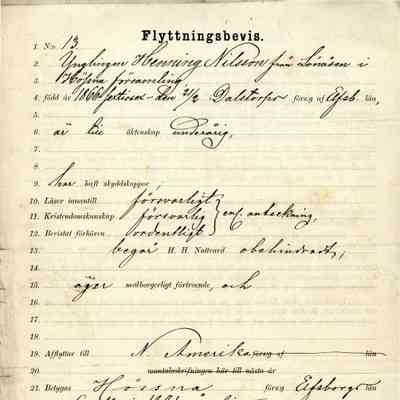 Flyttningsbevis.
1. N:o 13
2. Ynglingen Henning Nilsson från Lönåsen i
3. Hössna församling
4. född år 1866 sextiosex den 21/2 i Dalstorps förs:g af Elfsb. län,
5.
6. är till äktenskap underårig,
7.
8.
9. har haft skyddskoppor,
10. Läser innantill försvarligt
11. Kristendomskunskap försvarlig enl. anteckning,
12. Bevistat förhören ordentligt
13. begår H. H. Nattvard obehindradt,
14.
15. äger medborgerligt förtroende, och
16.
17.
18.
19. Afflyttar till N. Amerika förs:g af län
20. mantalsskrifningen här till nästa år
21. Betygas Hössna Elfsborgs län